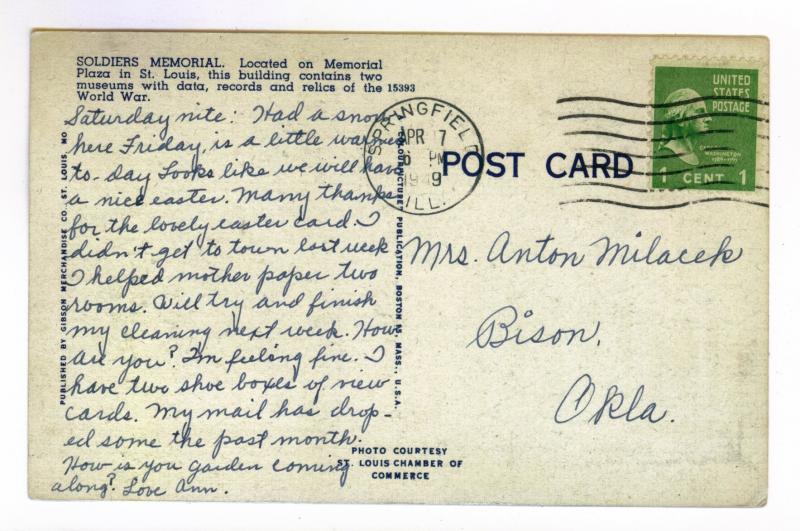 SOLDIERS MEMORIAL. Located on Memorial
Plaza in St. Louis, this building contains two
museums with data, records and relics of the 15393
World War.
Saturday nite: Had a snow
here Friday, is a little warmer
to-day Looks like we will have
a nice easter. Many thanks
for the lovely easter card. I
didn't get to town last week
I helped mother paper two
rooms. Will try and finish
my cleaning next week. How
are you? I'm feeling fine. I
have two shoe boxes of new
cards. My mail has drop-
ed some the past month.
How is you garden coming
along? Love Ann.
PUBLISHED BY GIBSON MERCHANDISE CO., ST. LOUIS, MO
COLOURPICTURE PUBLICATION, BOSTON 15, MASS., U.S.A.
PHOTO COURTESY
ST. LOUIS CHAMBER OF
COMMERCE
SPRINGFIELD
APR 7
PM
1949
ILL.
POST CARD
UNITED
STATES
POSTAGE
WASHINGTON
1 CENT 1
Mrs. Anton Milacek
Bison,
Okla.